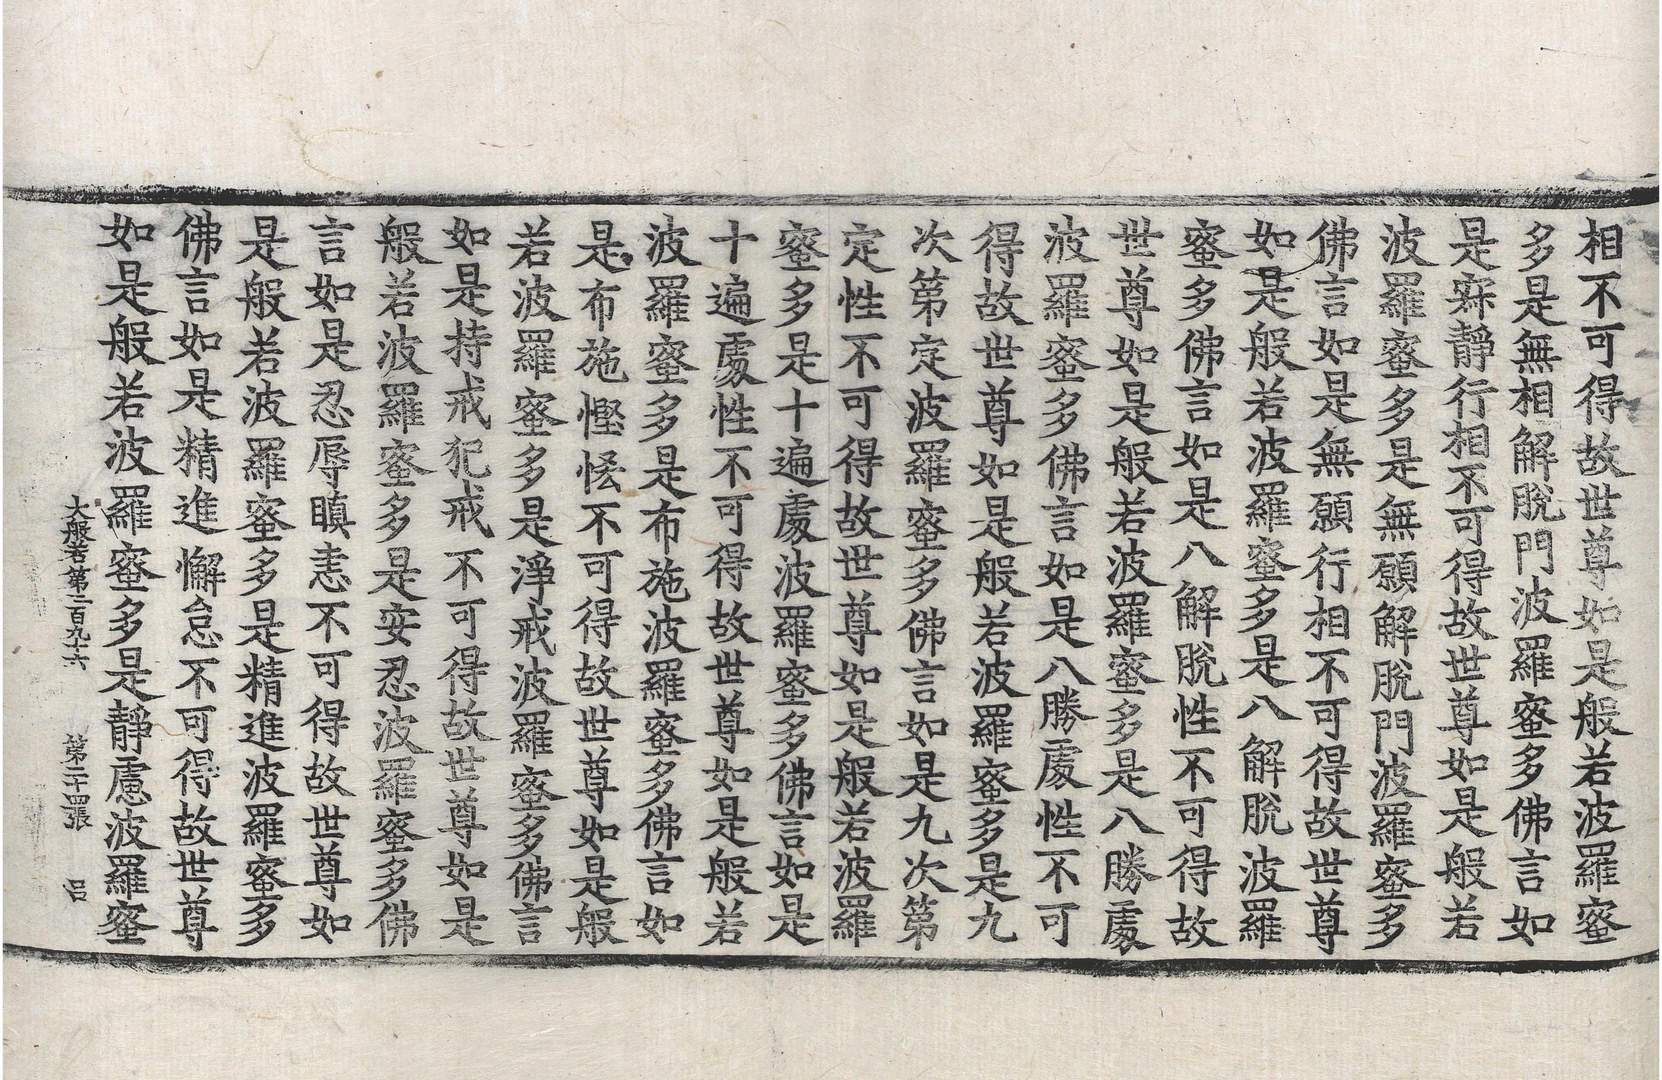 相不可得故世尊如是般若波羅蜜
多是無相解脫門波羅蜜多佛言如
是寂靜行相不可得故世尊如是般若
波羅蜜多是無願解脫門波羅蜜多
佛言如是無願行相不可得故世尊
如是般若波羅蜜多是八解脫波羅
蜜多佛言如是八解脫性不可得故
世尊如是般若波羅蜜多是八勝處
波羅蜜多佛言如是八勝處性不可
得故世尊如是般若波羅蜜多是九
次第定波羅蜜多佛言如是九次第
定性不可得故世尊如是般若波羅
蜜多是十遍處波羅蜜多佛言如是
十遍處性不可得故世尊如是般若
波羅蜜多是布施波羅蜜多佛言如
是布施慳悋不可得故世尊如是般
若波羅蜜多是淨戒波羅蜜多佛言
如是持戒犯戒不可得故世尊如是
般若波羅蜜多是安忍波羅蜜多佛
言如是忍辱瞋恚不可得故世尊如
是般若波羅蜜多是精進波羅蜜多
佛言如是精進懈怠不可得故世尊
如是般若波羅蜜多是靜慮波羅蜜
大般若第二百九十六 第二十四張 呂